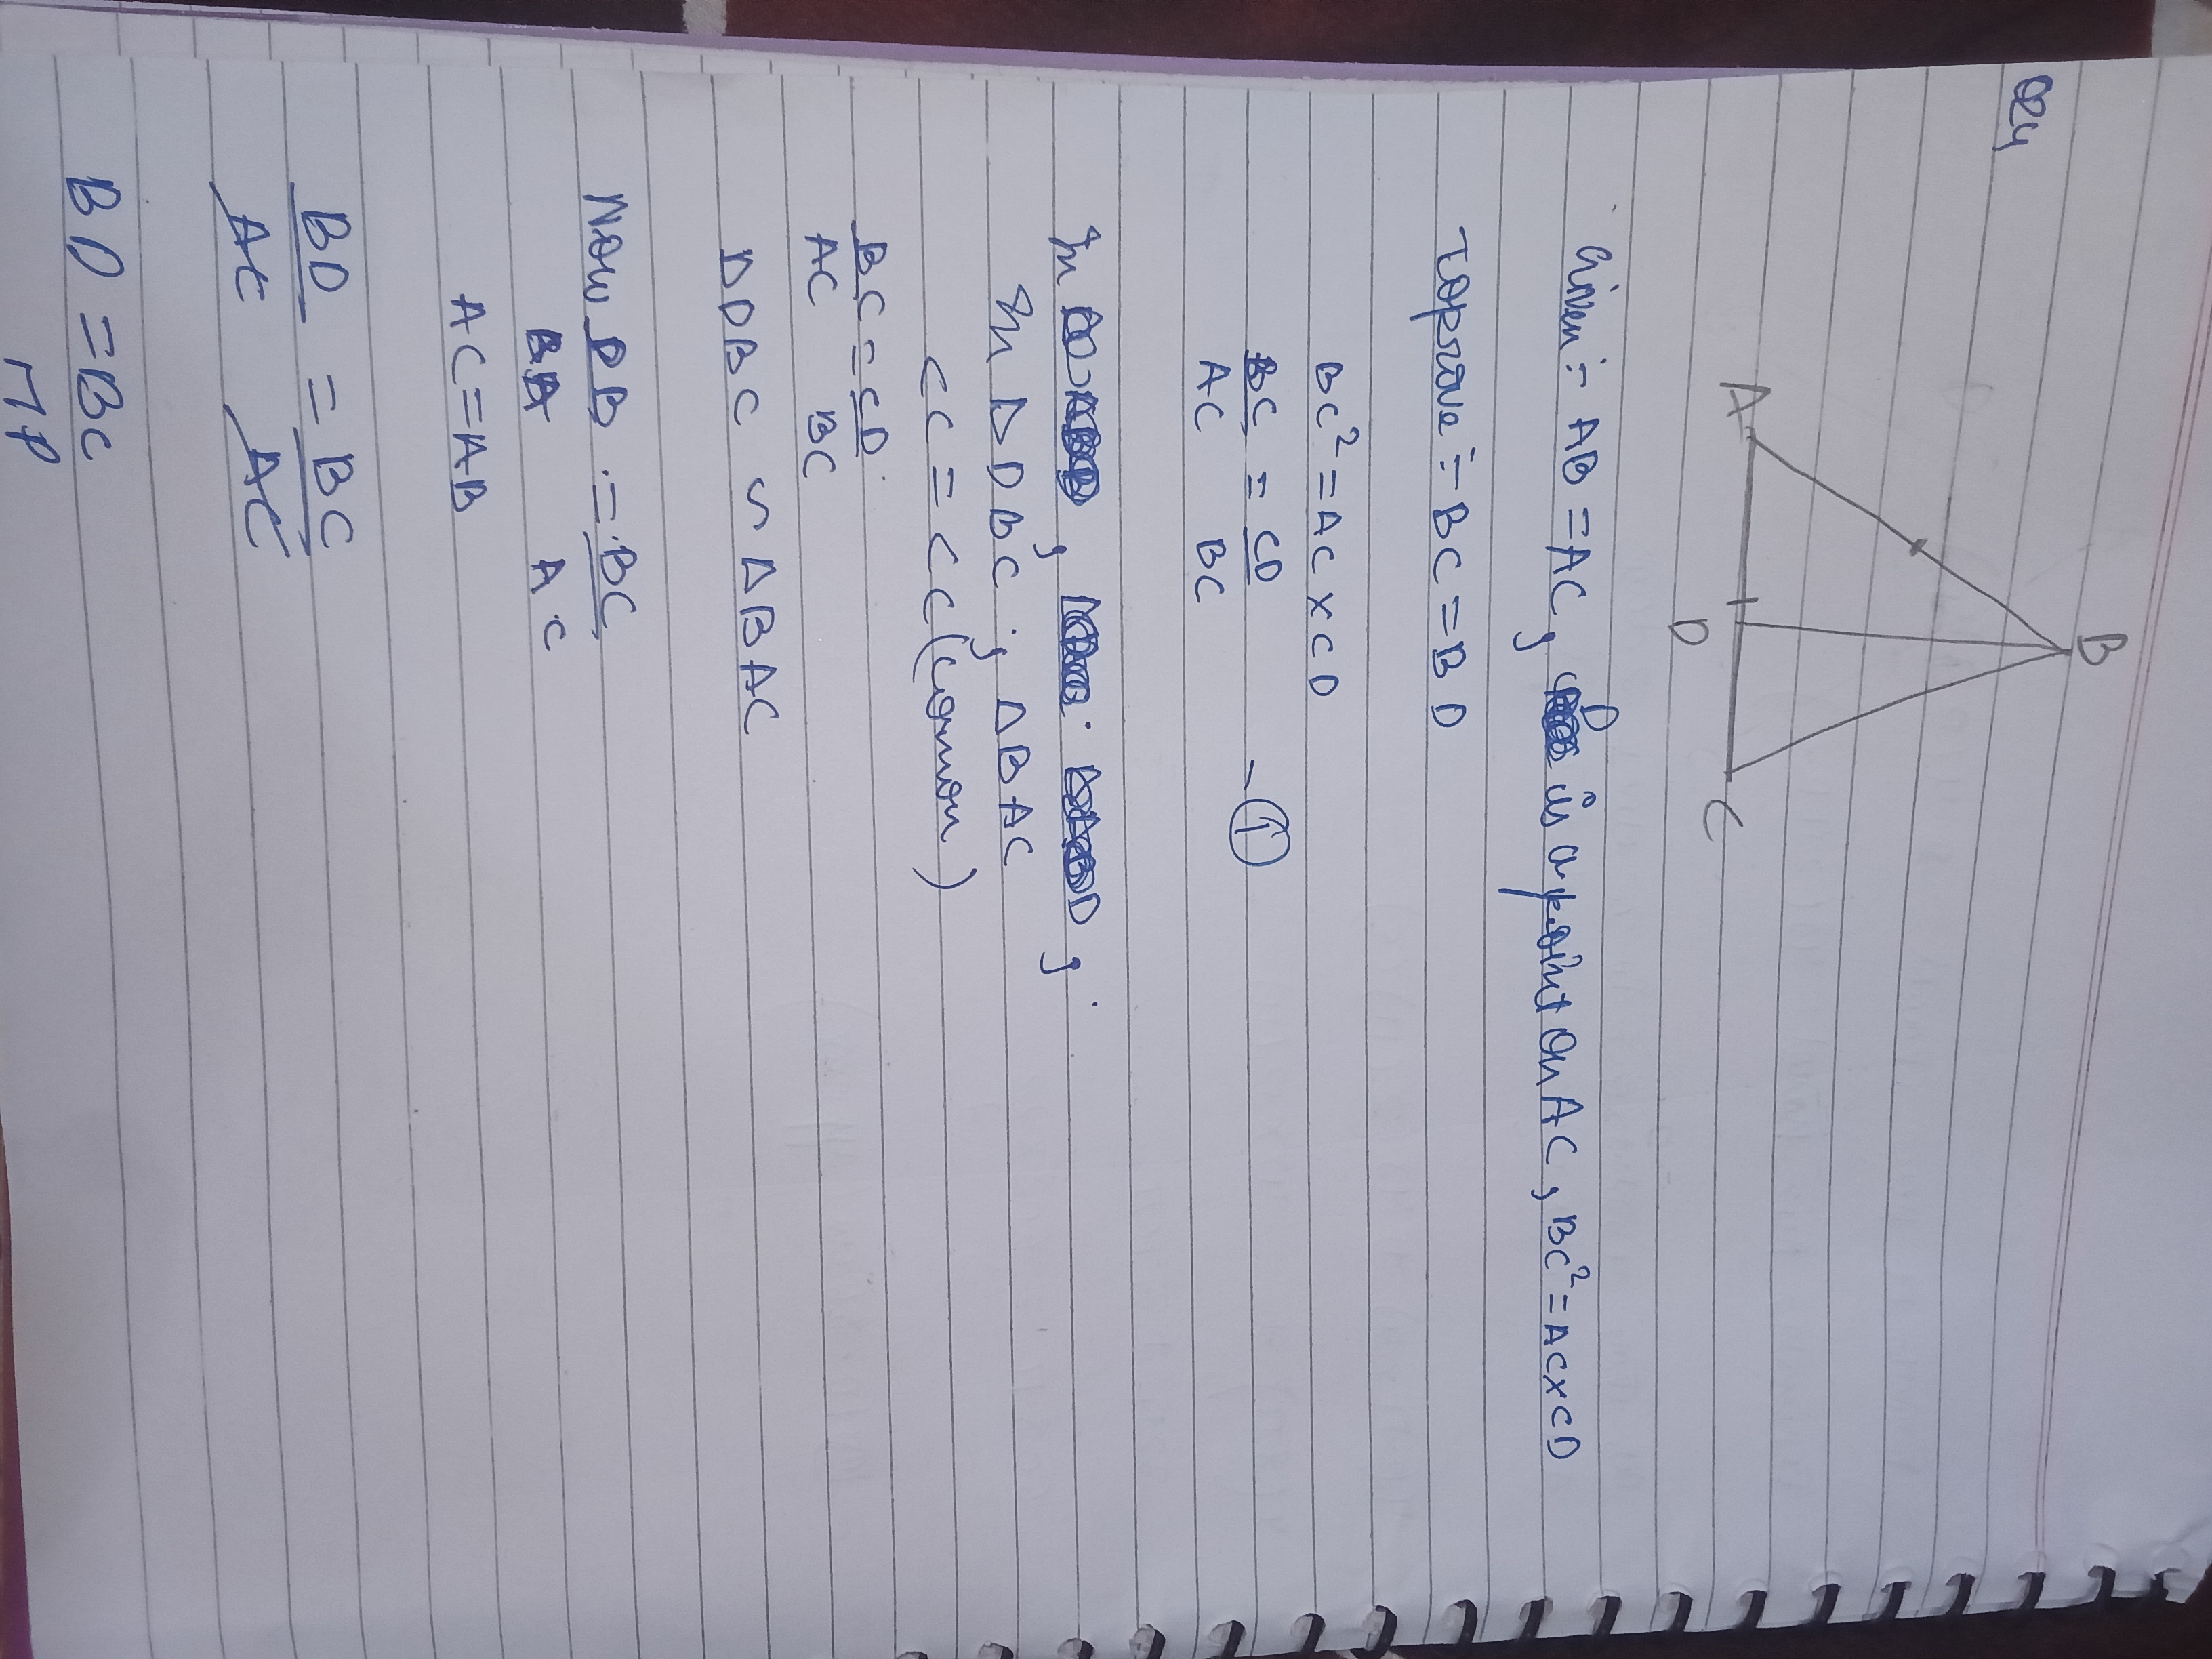 Q24
B
A
D
C
Given :- AB = AC, D is a point on AC, BC² = AC x CD
To prove :- BC = BD
BC² = AC x CD
BC/AC = CD/BC - ①
In
In Δ DBC ; Δ BAC
<C = <C (common)
BC/AC = CD/BC
Δ DBC ~ Δ BAC
Now DB/BA = BC/AC
AC = AB
BD/AC = BC/AC
BD = BC